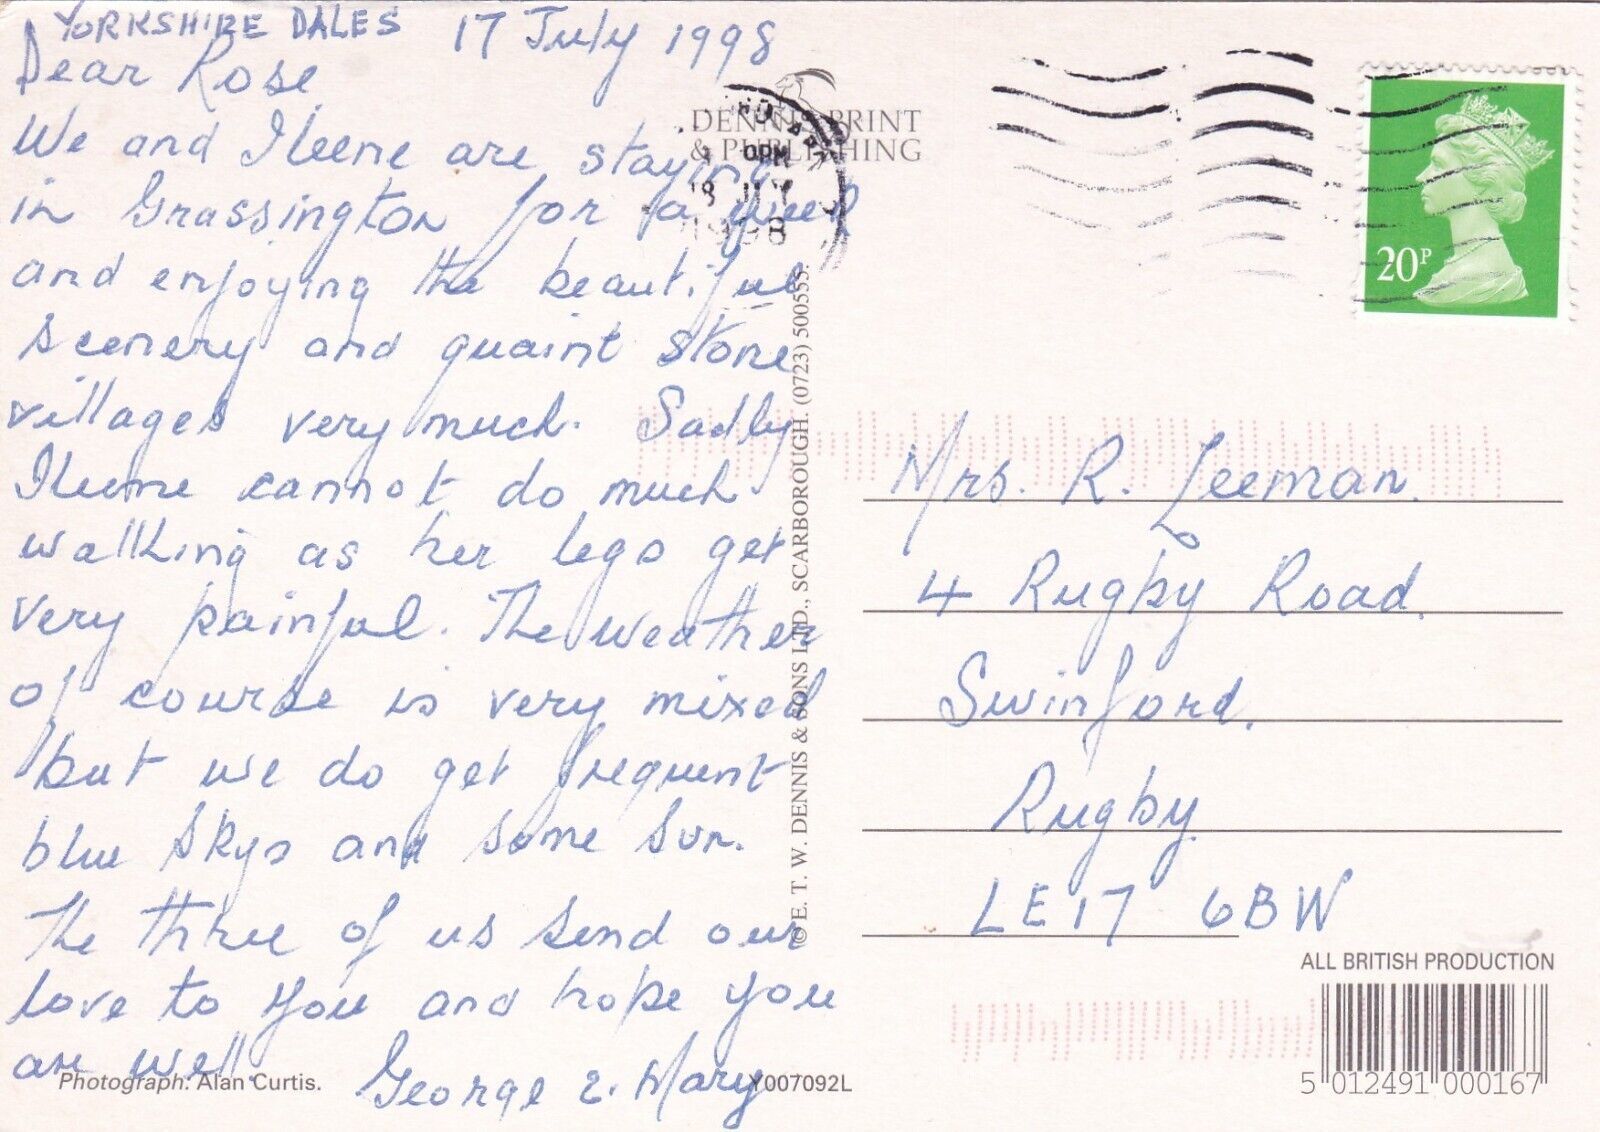 YORKSHIRE DALES 17 July 1998
Dear Rose
We and Ileene are staying
in Grassington for a week
and enjoying the beautiful
scenery and quaint stone
villages very much. Sadly
Ileene cannot do much
walking as her legs get
very painful. The weather
of course is very mixed
but we do get frequent
blue skys and some sun.
The three of us send our
love to you and hope you
are well
George & Mary
Photograph: Alan Curtis.
Y007092L
DENNIS PRINT
& PUBLISHING
1998
© E. T. W. DENNIS & SONS LTD., SCARBOROUGH. (0723) 500555.
20P
Mrs. R. Leeman.
4 Rugby Road.
Swinford.
Rugby
LE17 6BW
ALL BRITISH PRODUCTION
5 012491 000167